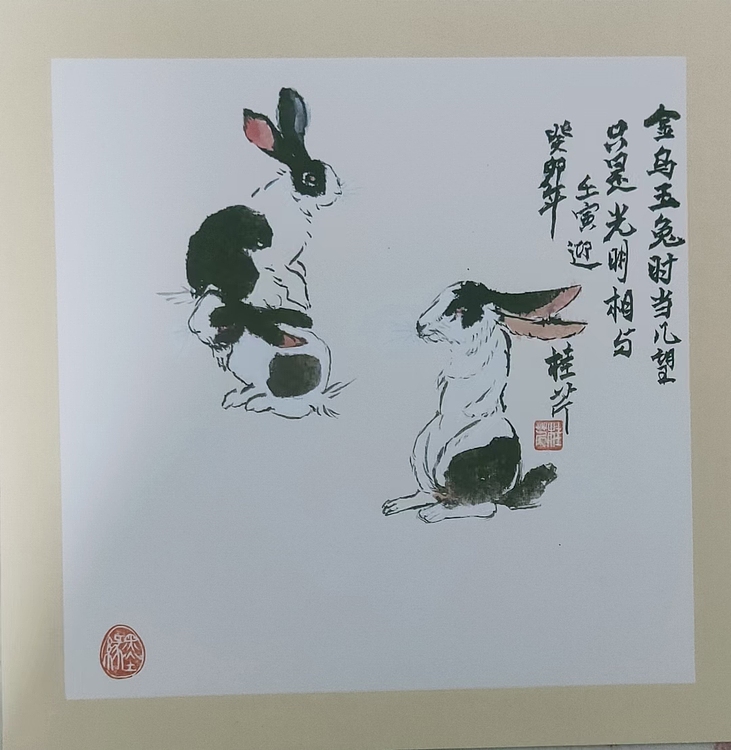 金乌玉兔时当几望
只是光明相与
壬寅迎
癸卯年
桂芹
墨缘